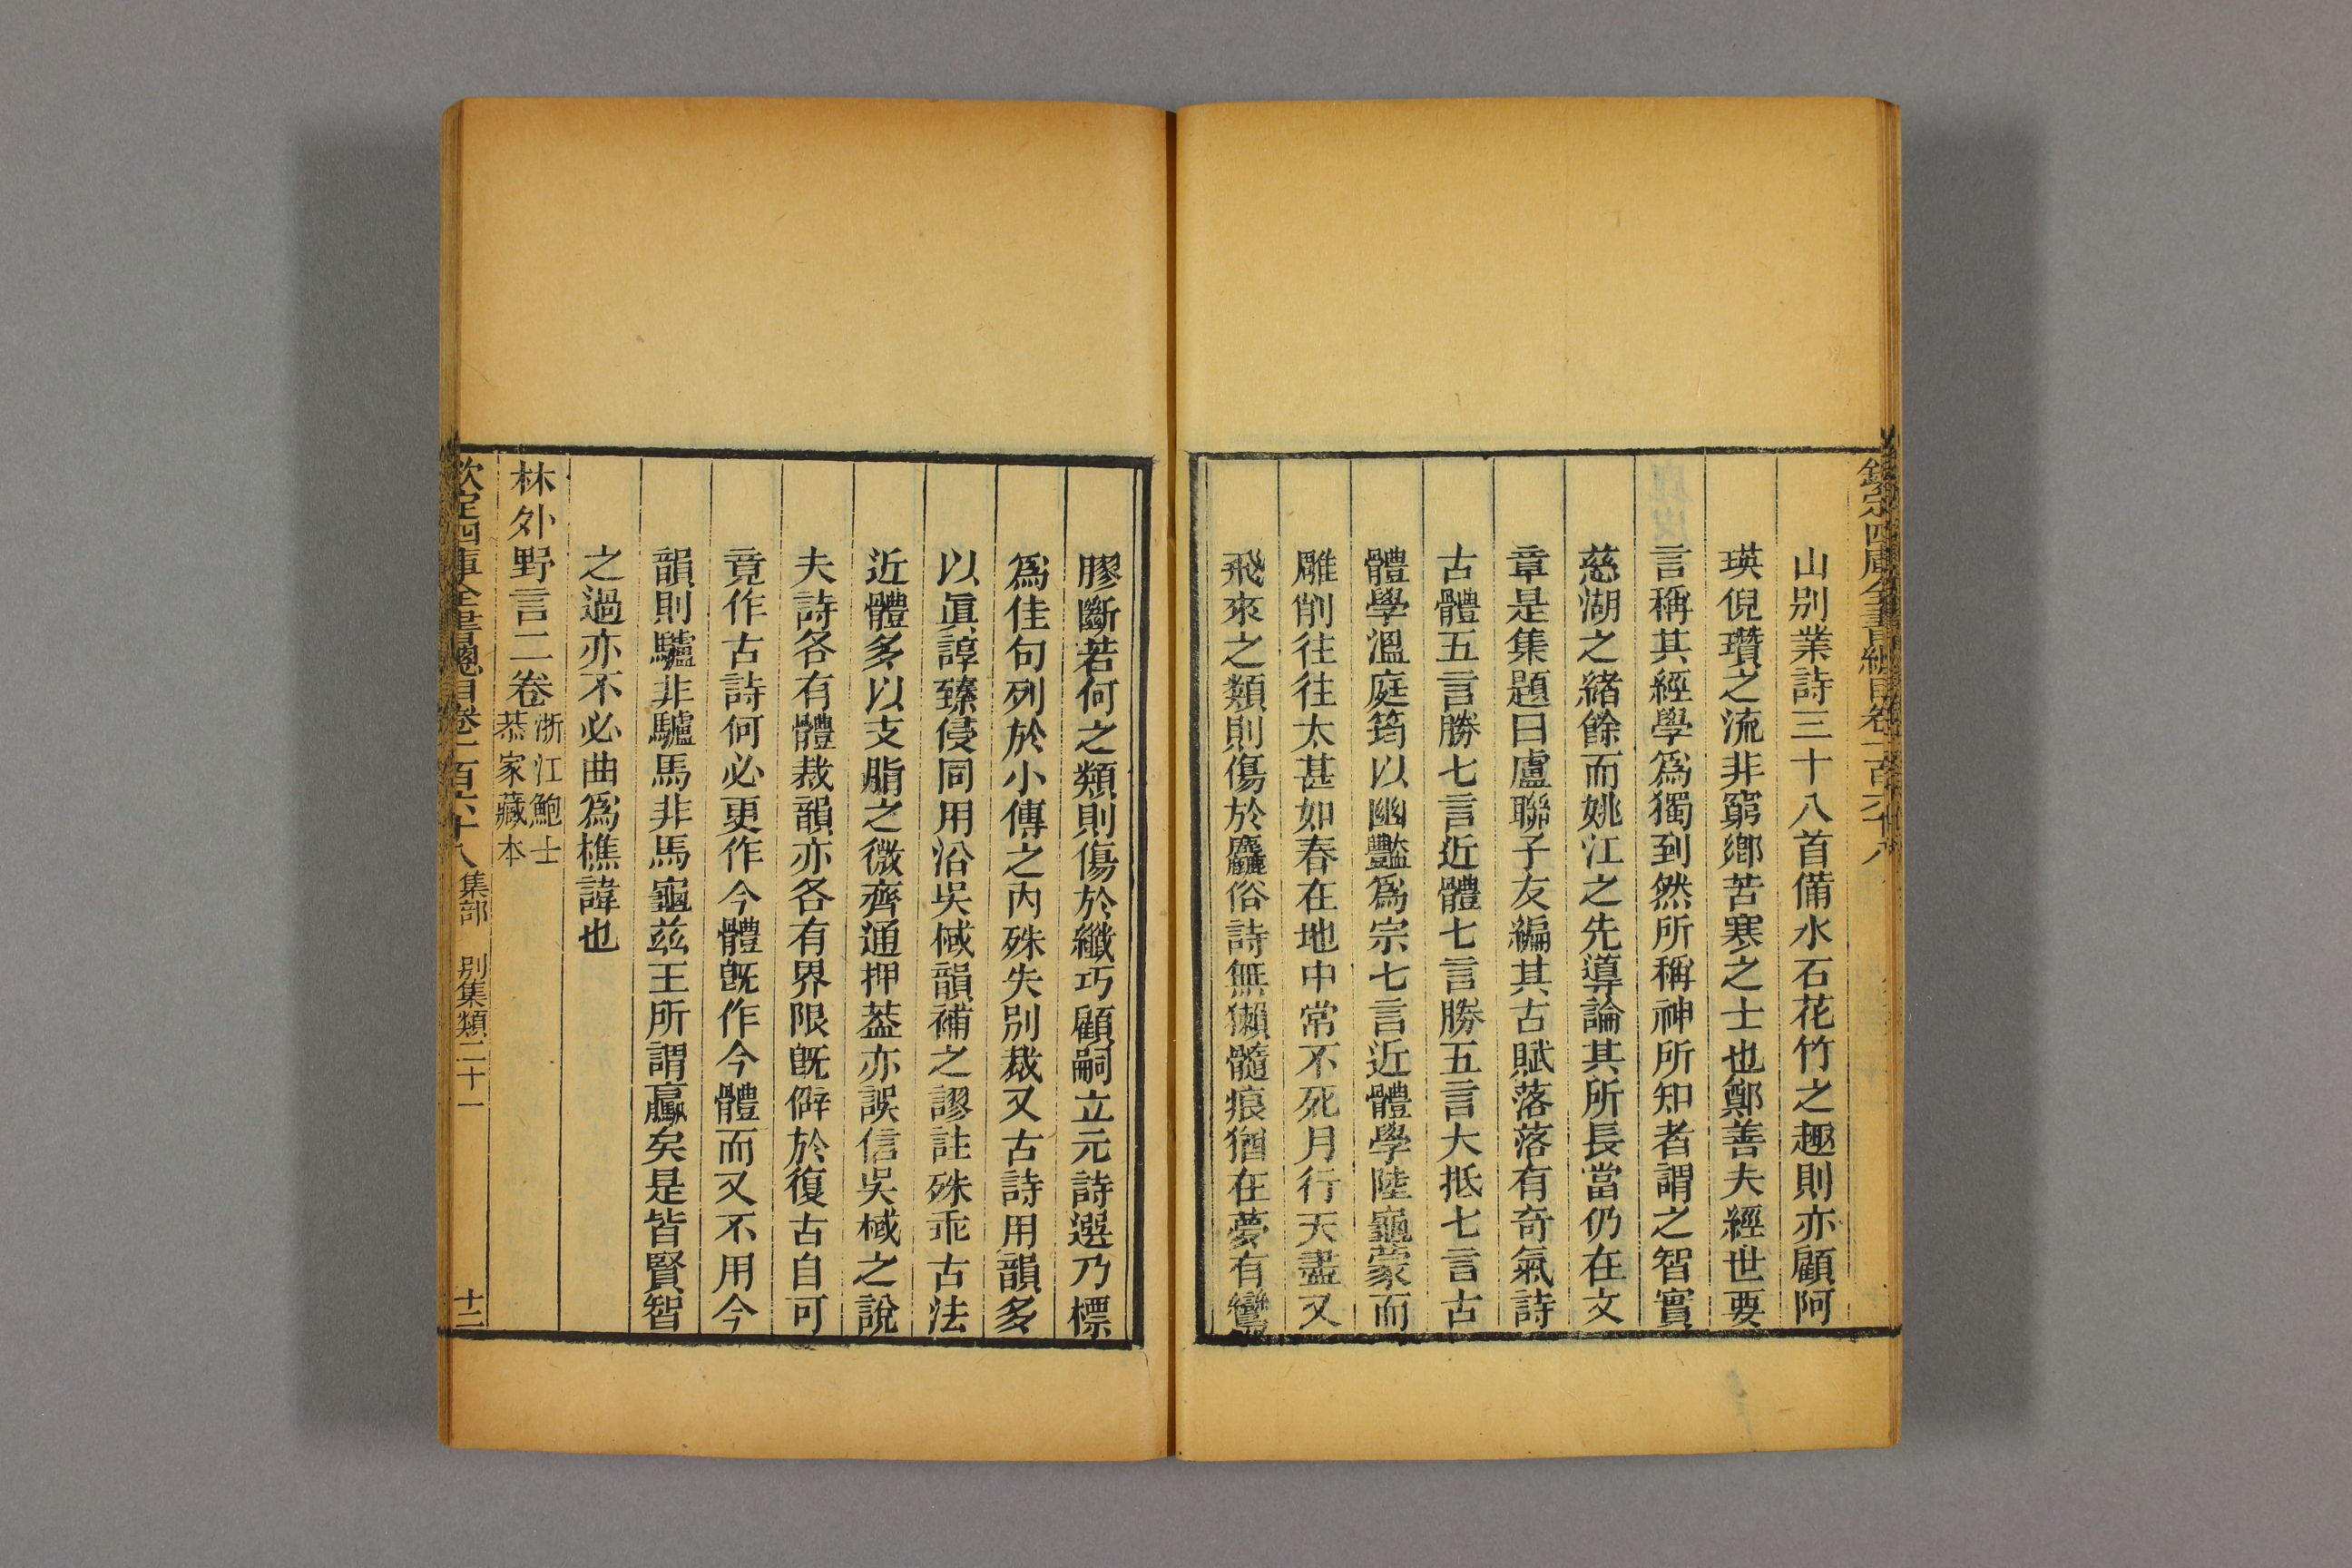 欽定四庫全書總目卷一百六十八
山别業詩三十八首備水石花竹之趣則亦顧阿
瑛倪瓚之流非窮鄉苦寒之士也鄭善夫經世要
言稱其經學爲獨到然所稱神所知者謂之智實
慈湖之緒餘而姚江之先導論其所長當仍在文
章是集題曰盧聯子友編其古賦落落有奇氣詩
古體五言勝七言近體七言勝五言大抵七言古
體學溫庭筠以幽豔爲宗七言近體學陸龜蒙而
雕削往往太甚如春在地中常不死月行天盡又
飛來之類則傷於麤俗詩無獺髓痕猶在夢有鸞
膠斷若何之類則傷於纖巧顧嗣立元詩選乃標
爲佳句列於小傳之内殊失別裁又古詩用韻多
以眞諄臻侵同用沿吳棫韻補之謬註殊乖古法
近體多以支脂之微齊通押葢亦誤信吳棫之說
夫詩各有體裁韻亦各有界限旣僻於復古自可
竟作古詩何必更作今體旣作今體而又不用今
韻則驢非驢馬非馬龜茲王所謂驘矣是皆賢智
之過亦不必曲爲樵諱也
林外野言二卷
浙江鮑士
恭家藏本
欽定四庫全書總目卷一百六十八 集部 别集類二十一 十二